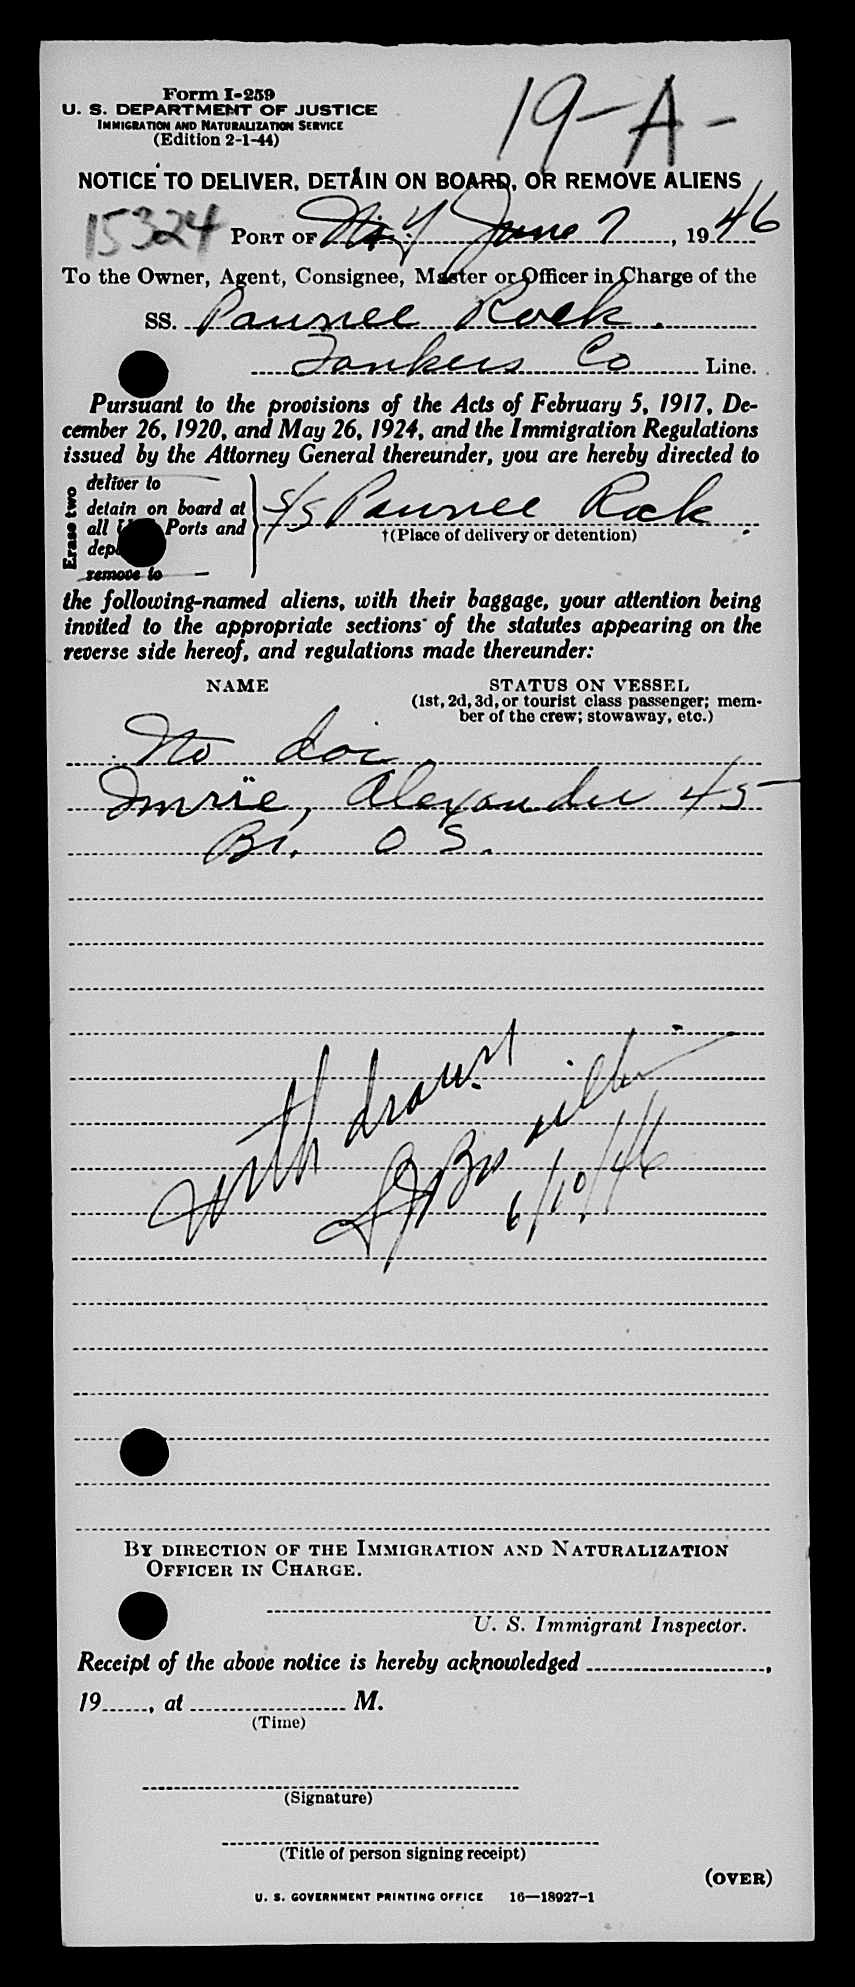 Form I-259
U. S. DEPARTMENT OF JUSTICE
IMMIGRATION AND NATURALIZATION SERVICE
(Edition 2-1-44)
19-A-
NOTICE TO DELIVER, DETAIN ON BOARD, OR REMOVE ALIENS
15324 PORT OF N.Y. June 7, 1946
To the Owner, Agent, Consignee, Master or Officer in Charge of the
SS. Pawnee Rock.
Tankers Co Line.
Pursuant to the provisions of the Acts of February 5, 1917, De-
cember 26, 1920, and May 26, 1924, and the Immigration Regulations
issued by the Attorney General thereunder, you are hereby directed to
Erase two
deliver to
detain on board at
all Ports and
remove to
S/S Pawnee Rock.
†(Place of delivery or detention)
the following-named aliens, with their baggage, your attention being
invited to the appropriate sections of the statutes appearing on the
reverse side hereof, and regulations made thereunder:
NAME STATUS ON VESSEL
(1st, 2d, 3d, or tourist class passenger; mem-
ber of the crew; stowaway, etc.)
No doc.
Imrie, Alexander 45
Br. O S.
withdrawn
6/10/46
BY DIRECTION OF THE IMMIGRATION AND NATURALIZATION
OFFICER IN CHARGE.
U. S. Immigrant Inspector.
Receipt of the above notice is hereby acknowledged ,
19 , at M.
(Time)
(Signature)
(Title of person signing receipt)
(OVER)
U. S. GOVERNMENT PRINTING OFFICE 16—18927-1